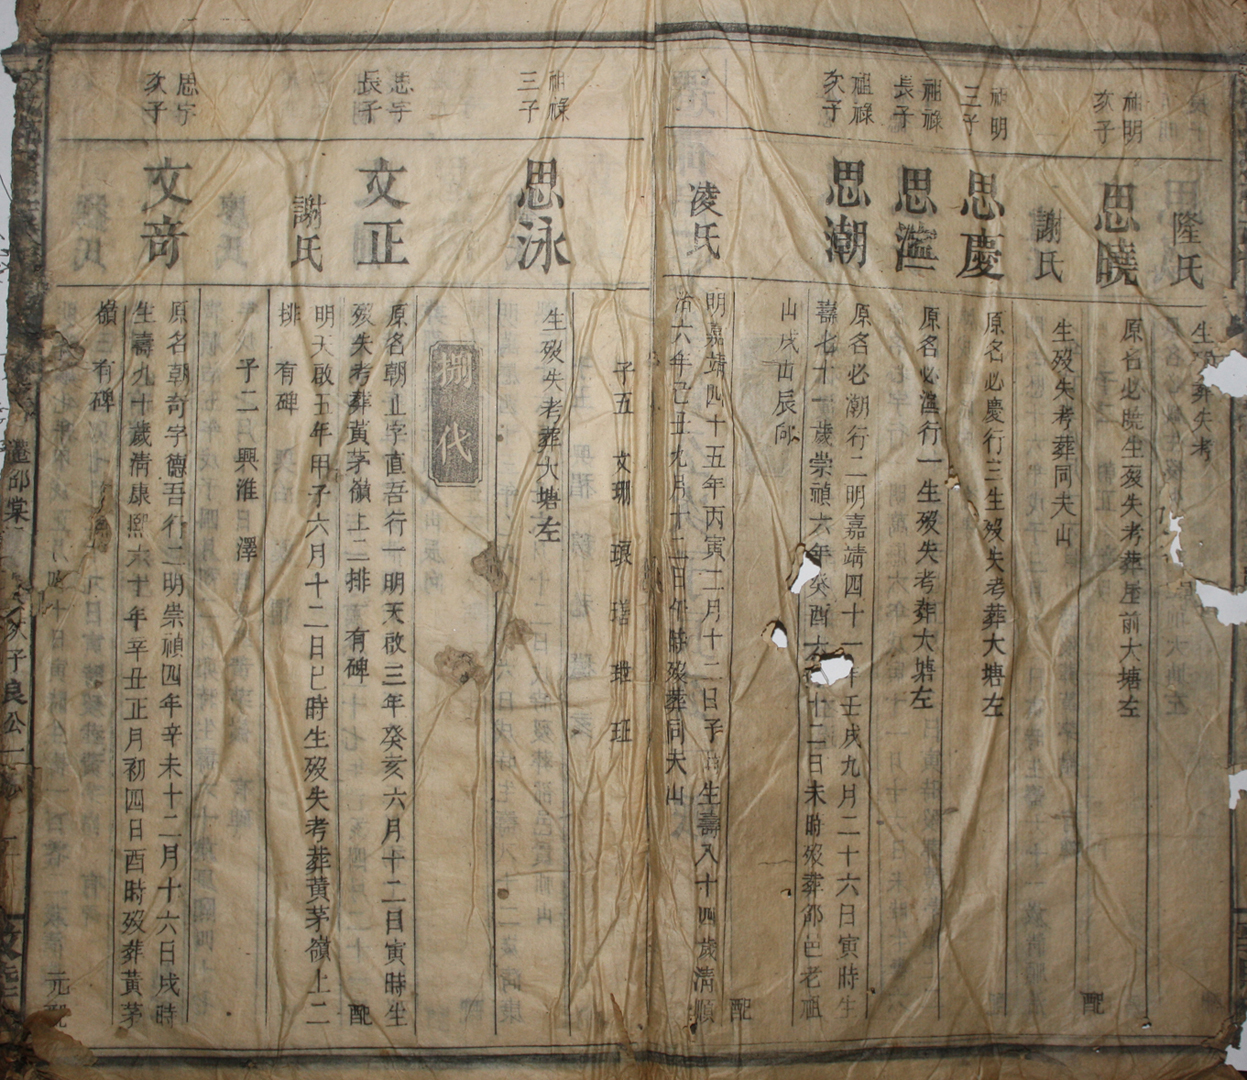 隆氏
生
葬失考
祖明
次子
思曉
原名必曉生歿失考葬屋前大塘左
配
謝氏
生歿失考葬同夫山
祖明
三子
思慶
原名必慶行三生歿失考葬大塘左
祖祿
長子
思溢
原名必溢行一生歿失考葬大塘左
祖祿
次子
思潮
原名必潮行二明嘉靖四十一年壬戌九月二十六日寅時生
壽七十一歲崇禎六年癸酉
十二日未時歿葬邵邑老祖
山戌山辰向
配
凌氏
明嘉靖四十五年丙寅二月十二日子時生壽八十四歲清順
治六年己丑九月十二日午時歿葬同夫山
子五 文珊 瑔 瑨 玴 珏
祖祿
三子
思泳
生歿失考葬大塘左
捌代
志字
長子
文正
原名朝正字直吾行一明天啟三年癸亥六月十二日寅時生
歿失考葬黃茅嶺上二排 有碑
配
謝氏
明天啟五年甲子六月十二日巳時生歿失考葬黃茅嶺上二
排 有碑
子二 興淮 澤
思字
次子
文奇
原名朝奇字德吾行二明崇禎四年辛未十二月十六日戌時
生壽九十歲清康熙六十年辛丑正月初四日酉時歿葬黃茅
嶺 有碑
元配
次子良公